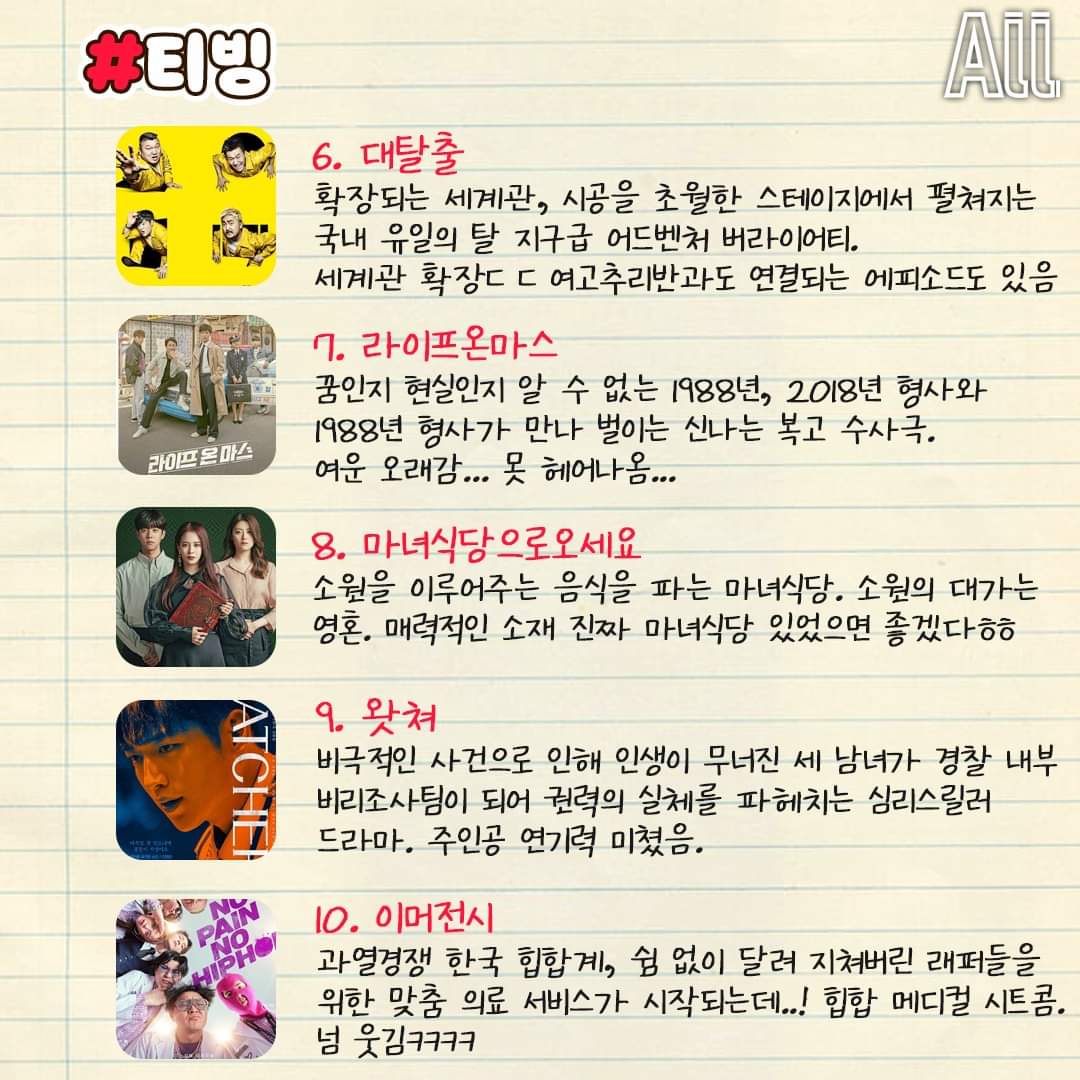 #티빙
All
6. 대탈출
확장되는 세계관, 시공을 초월한 스테이지에서 펼쳐지는
국내 유일의 탈 지구급 어드벤처 버라이어티.
세계관 확장ㄷㄷ 여고추리반과도 연결되는 에피소드도 있음
7. 라이프온마스
꿈인지 현실인지 알 수 없는 1988년, 2018년 형사와
1988년 형사가 만나 벌이는 신나는 복고 수사극.
여운 오래감... 못 헤어나옴...
라이프 온 마스
8. 마녀식당으로오세요
소원을 이루어주는 음식을 파는 마녀식당. 소원의 대가는
영혼. 매력적인 소재 진짜 마녀식당 있었으면 좋겠다ㅎㅎ
9. 왓쳐
비극적인 사건으로 인해 인생이 무너진 세 남녀가 경찰 내부
비리조사팀이 되어 권력의 실체를 파헤치는 심리스릴러
드라마. 주인공 연기력 미쳤음.
ATCHER
10. 이머전시
과열경쟁 한국 힙합계, 쉼 없이 달려 지쳐버린 래퍼들을
위한 맞춤 의료 서비스가 시작되는데..! 힙합 메디컬 시트콤.
넘 웃김ㅋㅋㅋㅋ
NO
PAIN
NO
HIPHO